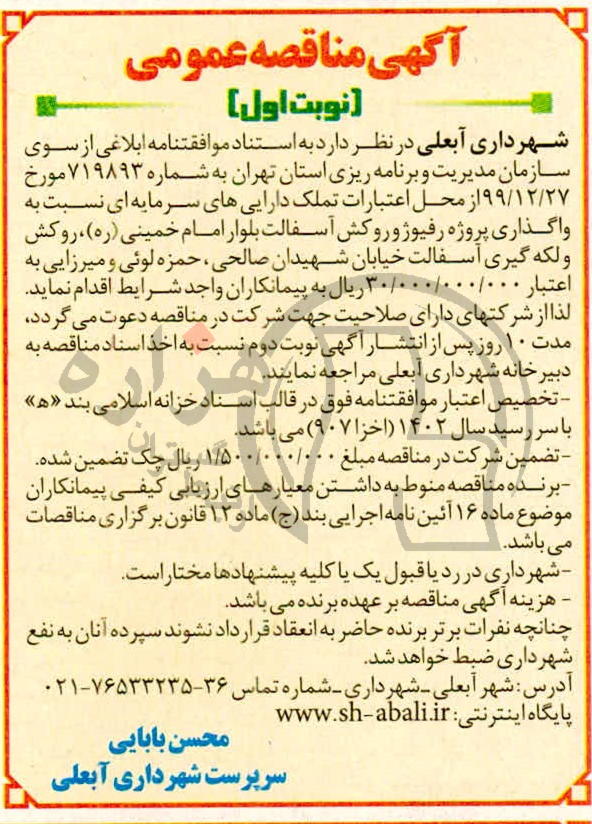 آگهی مناقصه عمومی
(نوبت اول)
شهرداری آبعلی در نظر دارد به استناد موافقتنامه ابلاغی از سوی
سازمان مدیریت و برنامه ریزی استان تهران به شماره ۷۱۹۸۹۳ مورخ
۹۹/۱۲/۲۷ از محل اعتبارات تملک دارایی های سرمایه ای نسبت به
واگذاری پروژه رفیوژ و روکش آسفالت بلوار امام خمینی (ره)، روکش
و لکه گیری آسفالت خیابان شهیدان صالحی، حمزه لوئی و میرزایی به
اعتبار ۳۰/۰۰۰/۰۰۰/۰۰۰ ریال به پیمانکاران واجد شرایط اقدام نماید.
لذا از شرکتهای دارای صلاحیت جهت شرکت در مناقصه دعوت می گردد،
مدت ۱۰ روز پس از انتشار آگهی نوبت دوم نسبت به اخذ اسناد مناقصه به
دبیرخانه شهرداری آبعلی مراجعه نمایند.
-تخصیص اعتبار موافقتنامه فوق در قالب اسناد خزانه اسلامی بند «ه»
با سررسید سال ۱۴۰۲ (اخزا ۹۰۷) می باشد.
-تضمین شرکت در مناقصه مبلغ ۱/۵۰۰/۰۰۰/۰۰۰ ریال چک تضمین شده.
-برنده مناقصه منوط به داشتن معیارهای ارزیابی کیفی پیمانکاران
موضوع ماده ۱۶ آئین نامه اجرایی بند (ج) ماده ۱۲ قانون برگزاری مناقصات
می باشد.
-شهرداری در رد یا قبول یک یا کلیه پیشنهادها مختار است.
- هزینه آگهی مناقصه بر عهده برنده می باشد.
چنانچه نفرات برتر برنده حاضر به انعقاد قرارداد نشوند سپرده آنان به نفع
شهرداری ضبط خواهد شد.
آدرس: شهر آبعلی ـ شهرداری ـ شماره تماس ۳۶-۷۶۵۳۳۲۳۵-۰۲۱
پایگاه اینترنتی: www.sh-abali.ir
محسن بابایی
سرپرست شهرداری آبعلی
هزاره